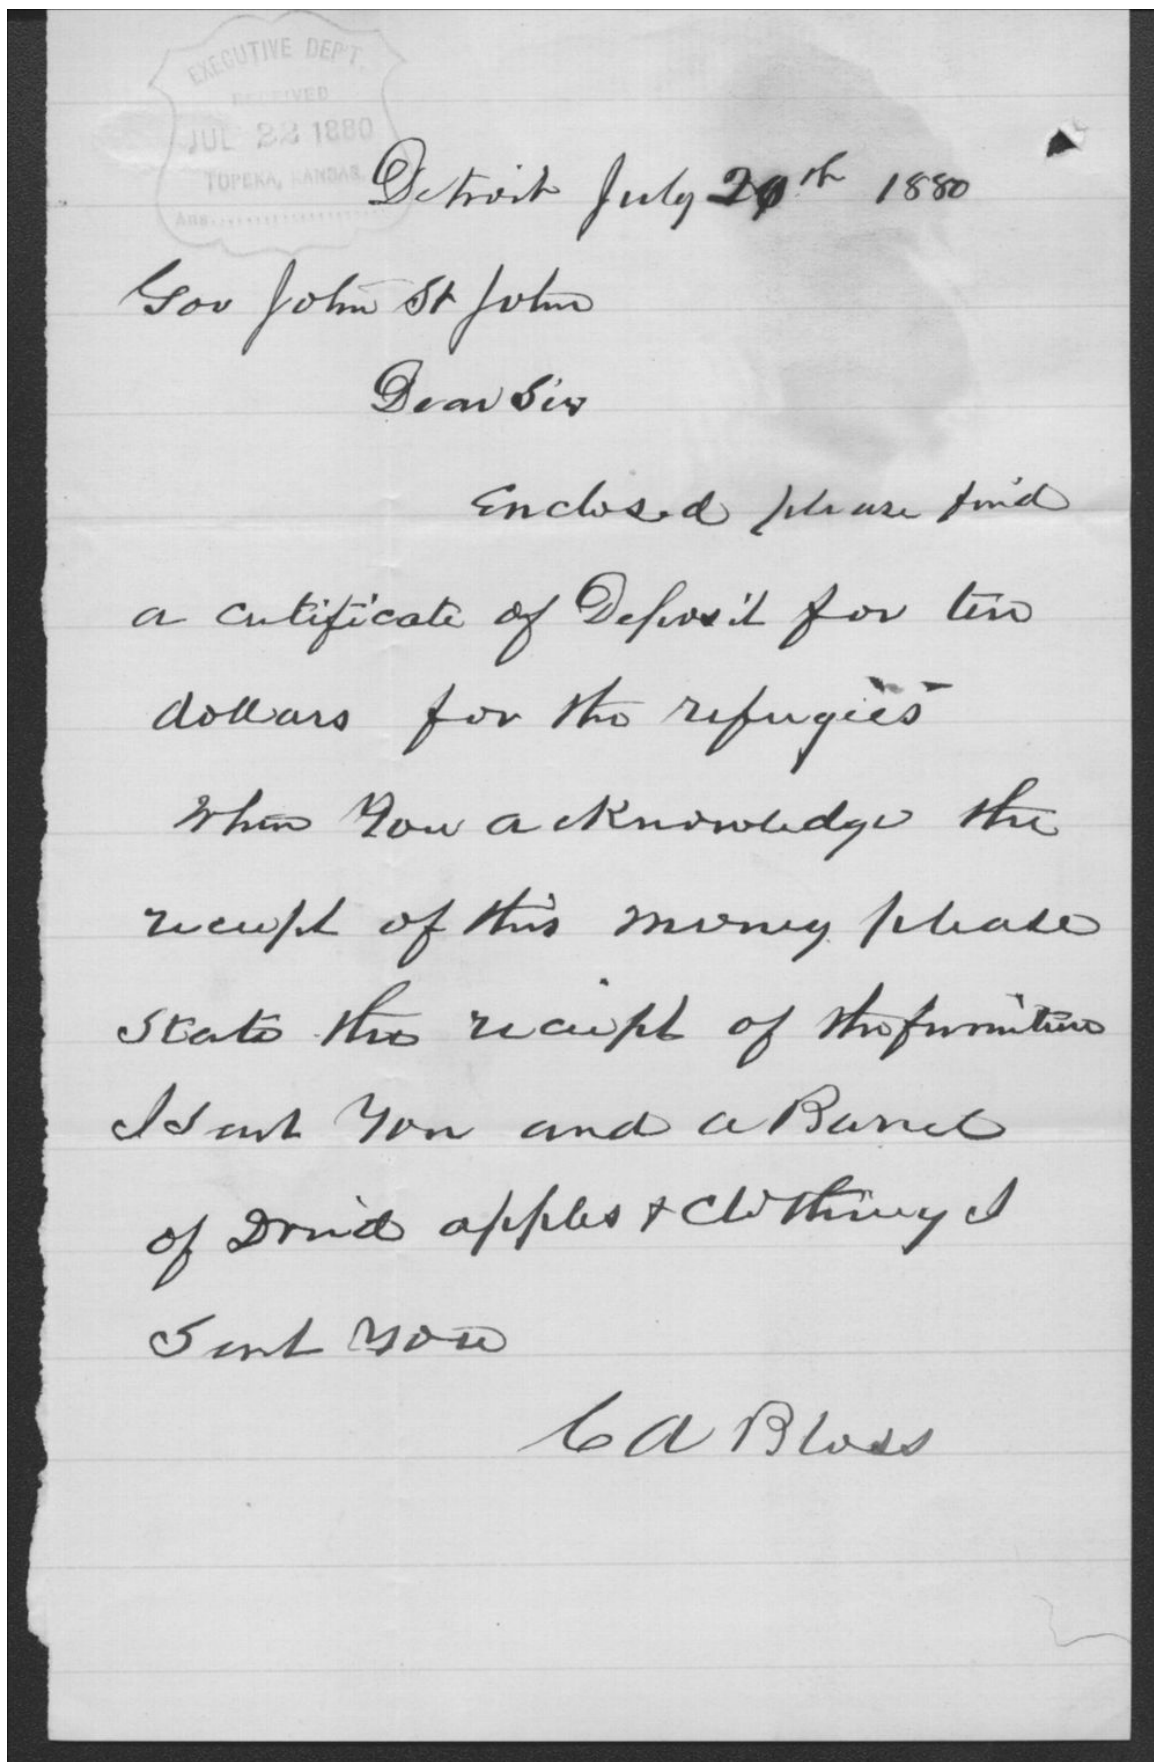 EXECUTIVE DEP'T.
RECEIVED
JUL 22 1880
TOPEKA, KANSAS.
Ans
Detroit July 20th 1880
Gov John St John
Dear Sir
Enclosed please find
a certificate of Deposit for ten
dollars for the refugees
When You acknowledge the
receipt of this money please
State the receipt of the furniture
I Sent You and a Barrel
of Dried apples & Clothing I
Sent You
C A Bloss